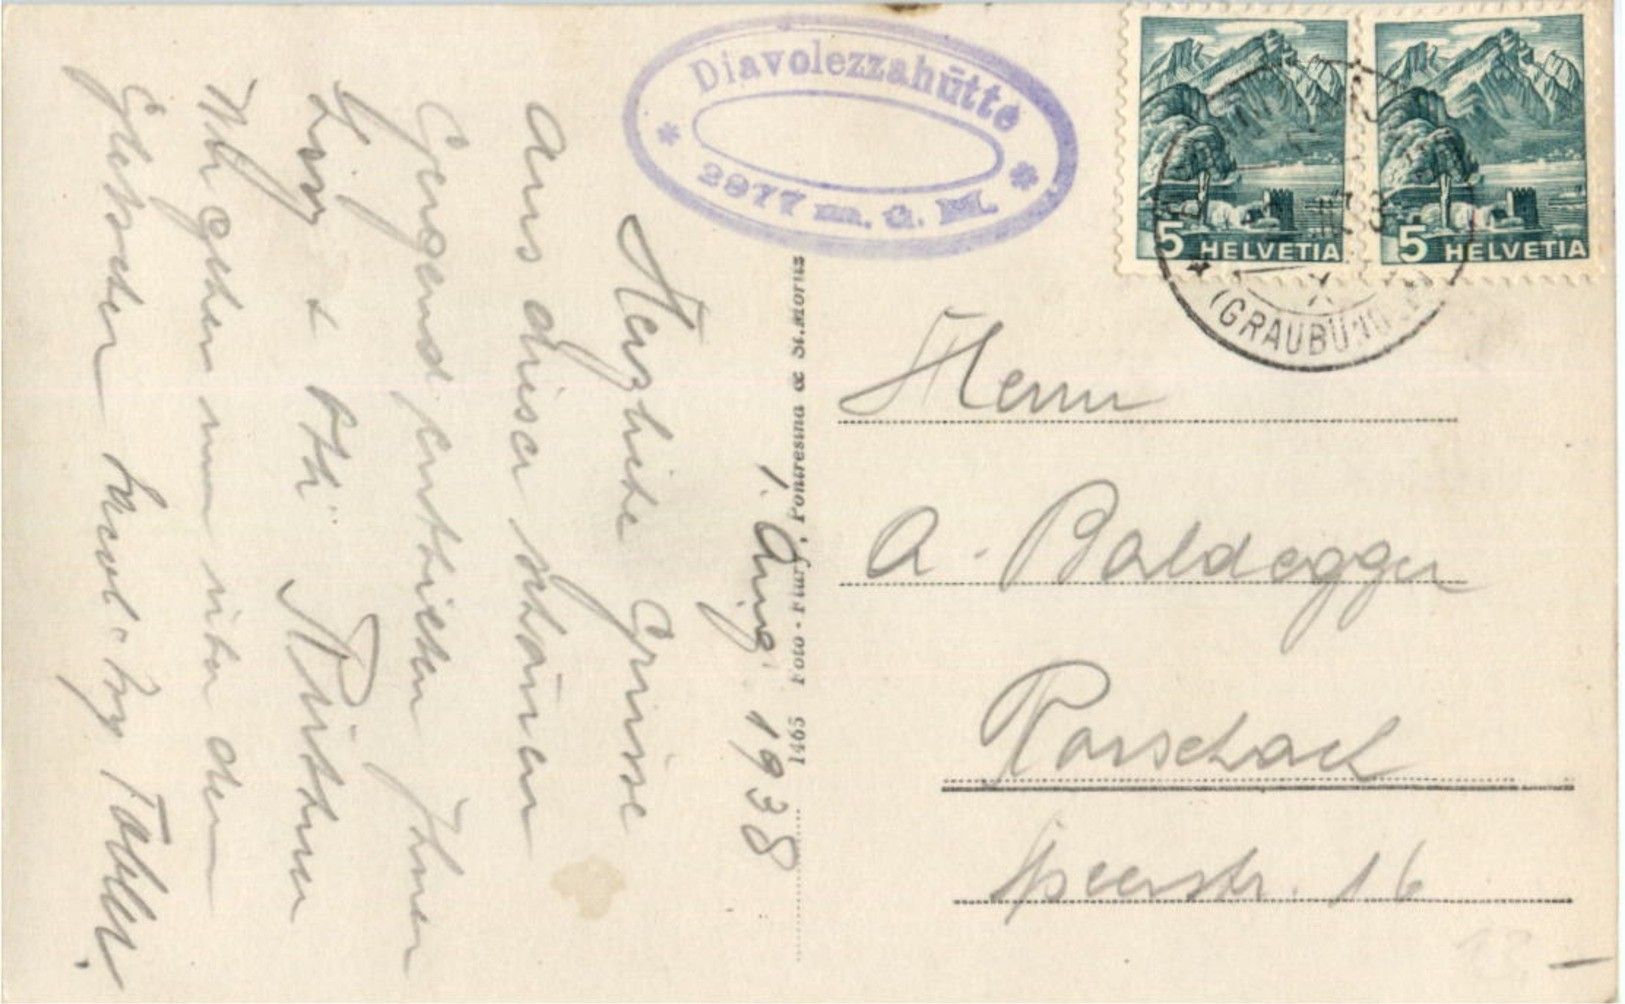 Diavolezzahütte
* 2977 m. ü. M. *
5 HELVETIA
5 HELVETIA
(GRAUBÜNDEN)
1465 Foto - Flury, Pontresina & St. Moritz
1. Aug. 1938
Herzliche Grüsse
aus dieser schönen
Gegend entbieten Ihnen
+
Wir gehen nun über den
Gletscher
Herrn
A. Baldegger
Rorschach
Speerstr. 16
13.